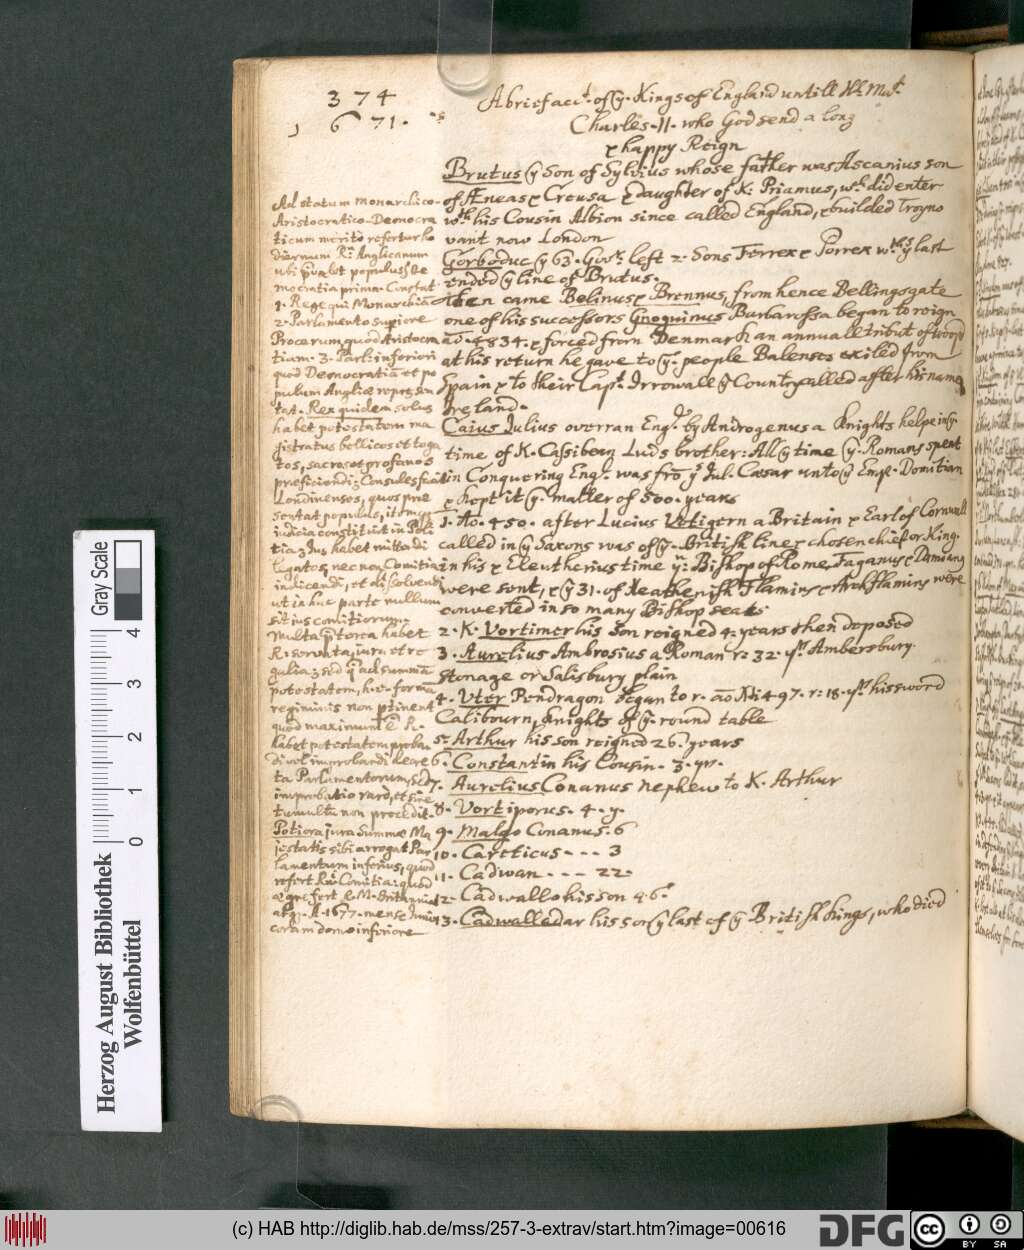 374
1671.
A brief acct. of ye. Kings of England untill His Mat.
Charles. II. who God send a long
& happy Reign
Brutus ye Son of Sylvius whose father was Ascanius son
of Æneas & Creusa daughter of K: Priamus, wch. did enter
wth his Cousin Albion since called England, & builded Troyno
vant now London
Gorboduc ye 63. Govr. left 2. Sons Ferrex & Porrex wth ye last
ended ye line of Brutus.
then came Belinus & Brennus, from hence Bellingsgate
one of his successors Gnoguinus Barbarossa began to reign
ad. 4834. & forced from Denmark an annuall tribut of
at his return he gave to ye. people Balenses exiled from
Spain & to their Capt. Irrowall ye Country called after his name
Ireland.
Caius Julius overran Engd. by Androgenus a Knights helpe in ye.
time of K. Cassibean Luds brother: All ye time ye. Romans spent
in Conquering Engd. was fro ye Jul. Cæsar unto ye Emp. Domitian
& kept it ye. matter of 500. years
1. Ao. 450. after Lucius Vetigern a Britain & Earl of Cornwall
called in ye Saxons was of ye. British line & chosen chief or King.
in his & Eleutherius time ye: Bishop of Rome, Faganus & Damianus
were sent, & ye 31. of Heathenish Flamins & Archflamins were
converted in so many Bishop seats.
2. K. Vortimer his Son reigned 4. years then deposed
3. Aurelius Ambrosius a Roman r: 32. yrs. Ambersbury
Stonage or Salisbury plain
4. Uter Pendragon begun to r. ao 497. r: 18. yrs. his sword
Calibourn, Knights of ye. round table
5. Arthur his son reigned 26. years
6. Constantin his Cousin. 3. yr.
7. Aurelius Conanus nephew to K. Arthur
8. Vortiporus. 4. y.
9. Malgo Conanus. 6
10. Careticus - - - 3
11. Cadwan - - - 22.
12. Cadwallo his son 46.
13. Cadwalledar his son ye last of ye British Kings, who died
Ad statum monarchico-
Aristocratico-Democra
ticum merito refertur ho
diernum R: Anglicanum
ubi prævalet populus, & De
mocratia prima. Constat
1. Rege qui Monarchiã
2. Parlamento supiore
Procerum, quod Aristocra
tiam. 3. Parl: inferiori
quod Democratiã et po
pulum Angliæ repræsen
tat. Rex quidem solus
habet potestatem ma
gistratus bellicos et toga
tos, sacros et profanos
præficiendi; Consules fiãt
Londinenses, quos præ
sentat populus, item
judicia constituit in Poli
tia; Jus habet mittendi
legatos, nec non Comitia
indicendi, et dissolvendi
ut in hac parte nullum
sit jus comitiorum.
Multa præterea habet
R: servata, jura et re
galia; sed qd ad summã
potestatem, h.e. formã
regiminis non ptinent
quod maximum ê R.
habet potestatem proban
di vel improbandi decre
ta Parlamentorum, sed
improbatio raro, et sine
tumultu non procedit.
Potiora jura summæ Ma
jestatis sibi arrogat Par
lamentum inferius, quod
refert Rm Comitia: quod
ægre fert R. M. Britannica
atq. A. 1677. mense Junii
coram domo inferiore
Herzog August Bibliothek
Wolfenbüttel
Gray Scale
0 1 2 3 4
(c) HAB http://diglib.hab.de/mss/257-3-extrav/start.htm?image=00616
DFG
cc BY SA